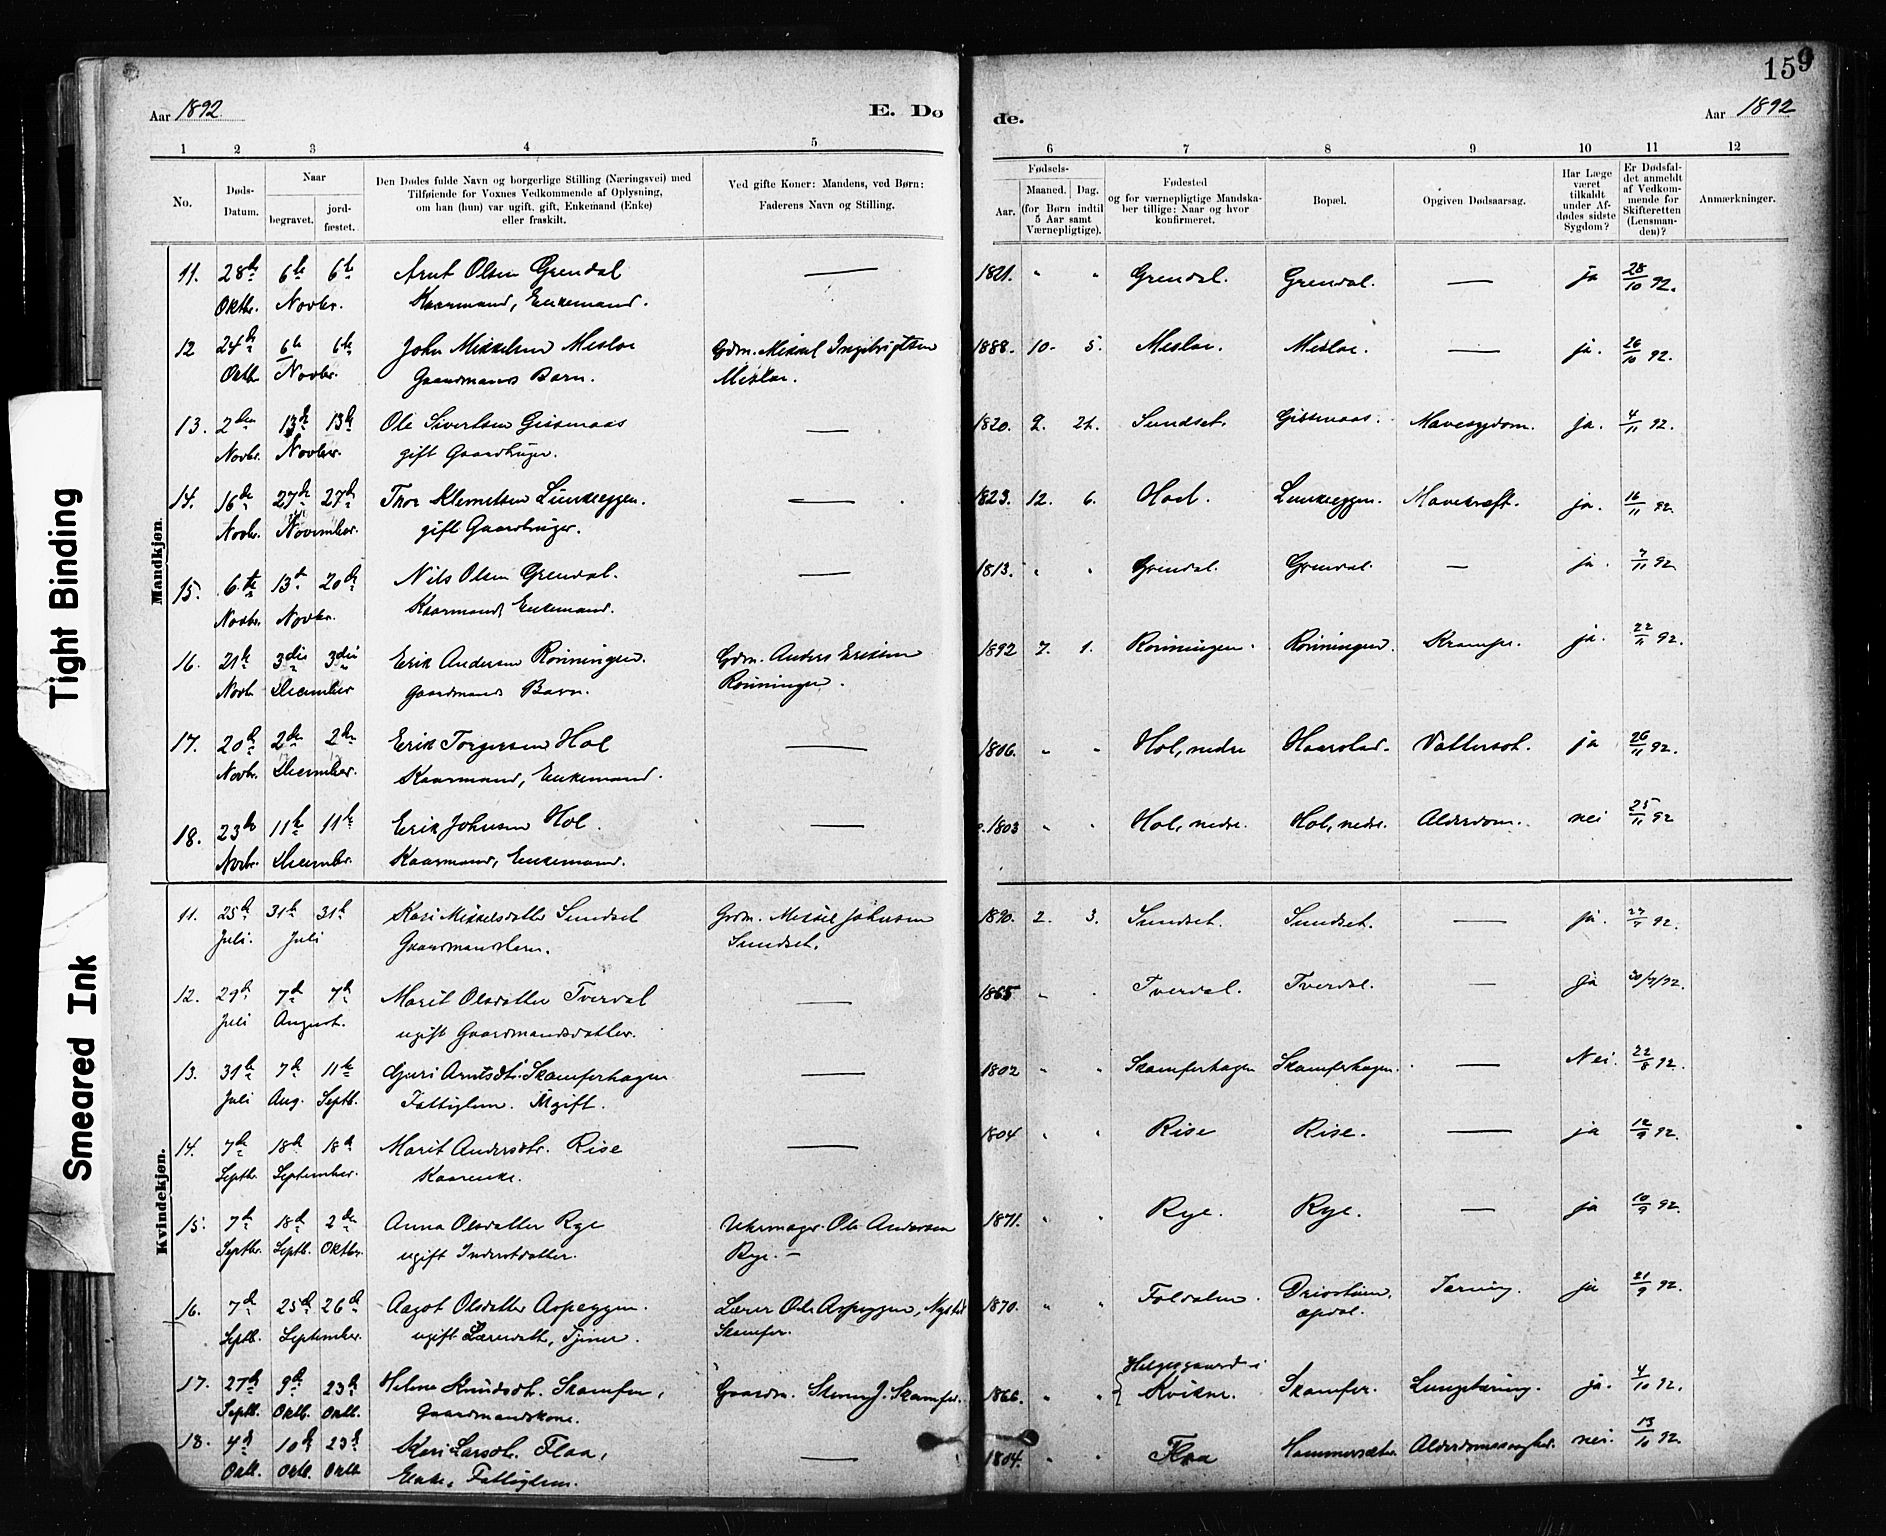 159
Aar 1892.
E. Dø
de.
Aar 1892
1 2 3 4 5 6 7 8 9 10 11 12
No.
Døds-
Datum.
Naar
begravet.
jord-
fæstet.
Den Dødes fulde Navn og borgerlige Stilling (Næringsvei) med
Tilføiende for Voxnes Vedkommende af Oplysning,
om han (hun) var ugift, gift, Enkemand (Enke)
eller fraskilt.
Ved gifte Koner: Mandens, ved Børn:
Faderens Navn og Stilling.
Fødsels-
Aar.
Maaned. Dag.
(for Børn indtil
5 Aar samt
Værnepligtige).
Fødested
og for værnepligtige Mandska-
ber tillige: Naar og hvor
konfirmeret.
Bopæl.
Opgiven Dødsaarsag.
Har Læge
været
tilkaldt
under Af-
dødes sidste
Sygdom?
Er Dødsfal-
det anmeldt
af Vedkom-
mende for
Skifteretten
(Lensman-
den)?
Anmærkninger.
Tight Binding
Smeared Ink
Mandkjøn.
11. 28de 6te 6te Arnt Olsen Grendal — 1821. " " Grendal. Grendal. — ja 28/10 92.
Oktbr. Novbr. Kaarmand, Enkemand.
12 24de 6te 6te John Mikkelsen Mesloe Gdm. Mikkel Ingebrigtsen 1888. 10. 5. Mesloe. Mesloe. — ja. 26/10 92.
Oktb. Novbr. Gaardmands Barn. Mesloe.
13. 2den 13de 13de Ole Sivertsen Gissmaas — 1820. 2. Sundset. Gissmaas. Mavesygdom. ja. 4/11 92.
Novbr. Novber. gift Gaardbruger.
14. 16de 27de 27de Thor Klemetsen Lunkeeggen. — 1823. 12. 6. Hoel. Lunkeeggen. Mavekræft. ja. 16/11 92.
Novbr. November. gift Gaardbruger.
15. 6te 13de 20de Nils Olsen Grendal. — 1813. " " Grendal. Grendal. — ja. 7/11 92.
Novbr. Novbr. Kaarmand, Enkemand.
16. 21de 3die 3die Erik Andersen Rønningen. Gdm. Anders Eriksen 1892 7. 1. Rønningen. Rønningen. Krampe. ja. 22/11 92.
Novb. December Gaardmands Barn. Rønningen.
17. 20de 2den 2den Erik Torgersen Hol — 1806. " " Hol, nedre Vattersot. ja 26/11 92.
Novbr. December. Kaarmand, Enkemand.
18. 23de 11te 11te Erik Johnsen Hol. — 1803 " " Hol, nedre. Hol, nedre. Alderdom. nei 25/11 92
Novbr. Decembr. Kaarmand, Enkemand.
Kvindekjøn.
11. 25de 31te 31te Kari Mikkelsdatter Sundset Grdm. Mikkel Johnsen 1890. 2. 3. Sundset. Sundset. — ja. 92.
Juli. Juli Gaardmandsbarn. Sundset.
12. 29de 7de 7de Marit Olsdatter Tverdal — 1865 " " Tverdal. Tverdal. — ja 30/7/92.
Juli August. ugift Gaardmandsdatter.
13. 31te 7de 11te Guri Arntsdtr. Skamferhagen — 1802 " " Skamferhagen Skamferhagen. — Nei. 22/8 92.
Juli Aug. Septb. Fattiglem. Ugift.
14. 7de 18de 18de Marit Andersdtr. Rise — 1804 " " Rise Rise. — ja 12/9 92.
Septbr. September. Kaarenke.
15. 7de 18de 2den Anna Olsdatter Rye Uhrmager Ole Andersen 1871. " " Rye. Rye. — ja 10/9 92.
Septbr. Septb. Oktbr. ugift Inderstdatter. Rye. —
16. 7de 25de 26de Aagot Olsdatter Aspeggen. Lærer Ole Aspeggen, 1870. " " Foldalen. Drivstuen, Tæring. ja 21/9 92.
Septb. September. ugift Lærerdatt., Tjener. Skamfer. Opdal.
17. 27de 9de 23de Helene Knudsdt. Skamfer, Gaardm. Steng J. Skamfer. 1866. " " Helgesgaard i Kvikne. Skamfer. Lungetæring. ja. 4/10 92.
Septb. Oktb. Oktb. Gaardmandskone.
18. 4de 10de 23de Kari Larsdt. Flaa, — 1804. " " Flaa Hammersæter. Alderdomssvaghed. nei. 13/10 92.
Oktb. Oktb. Oktb Enke, Fattiglem.